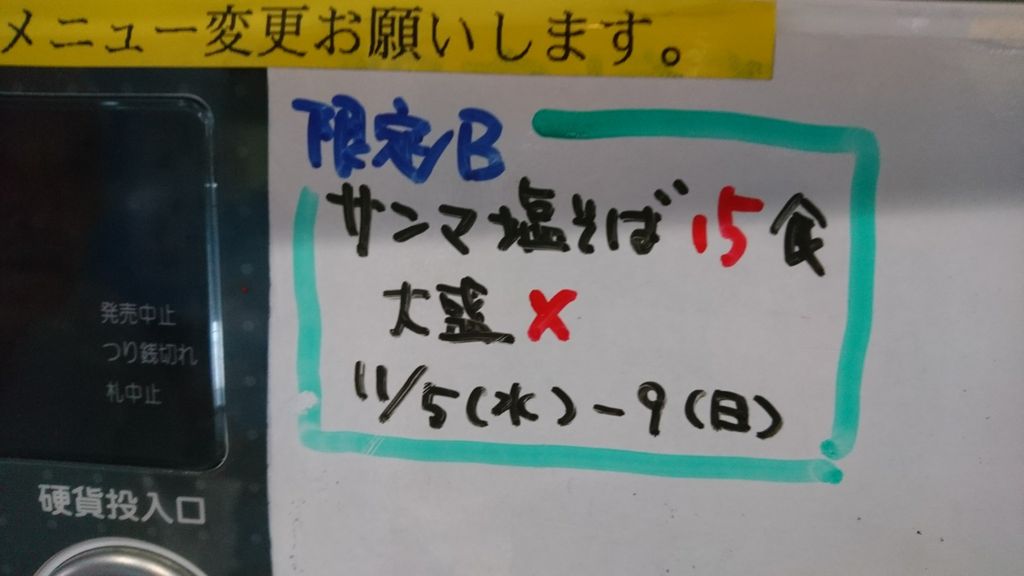 メニュー変更お願いします。
限定B
サンマ塩そば 15食
大盛 ×
11/5(水)-9(日)
発売中止
つり銭切れ
札中止
硬貨投入口